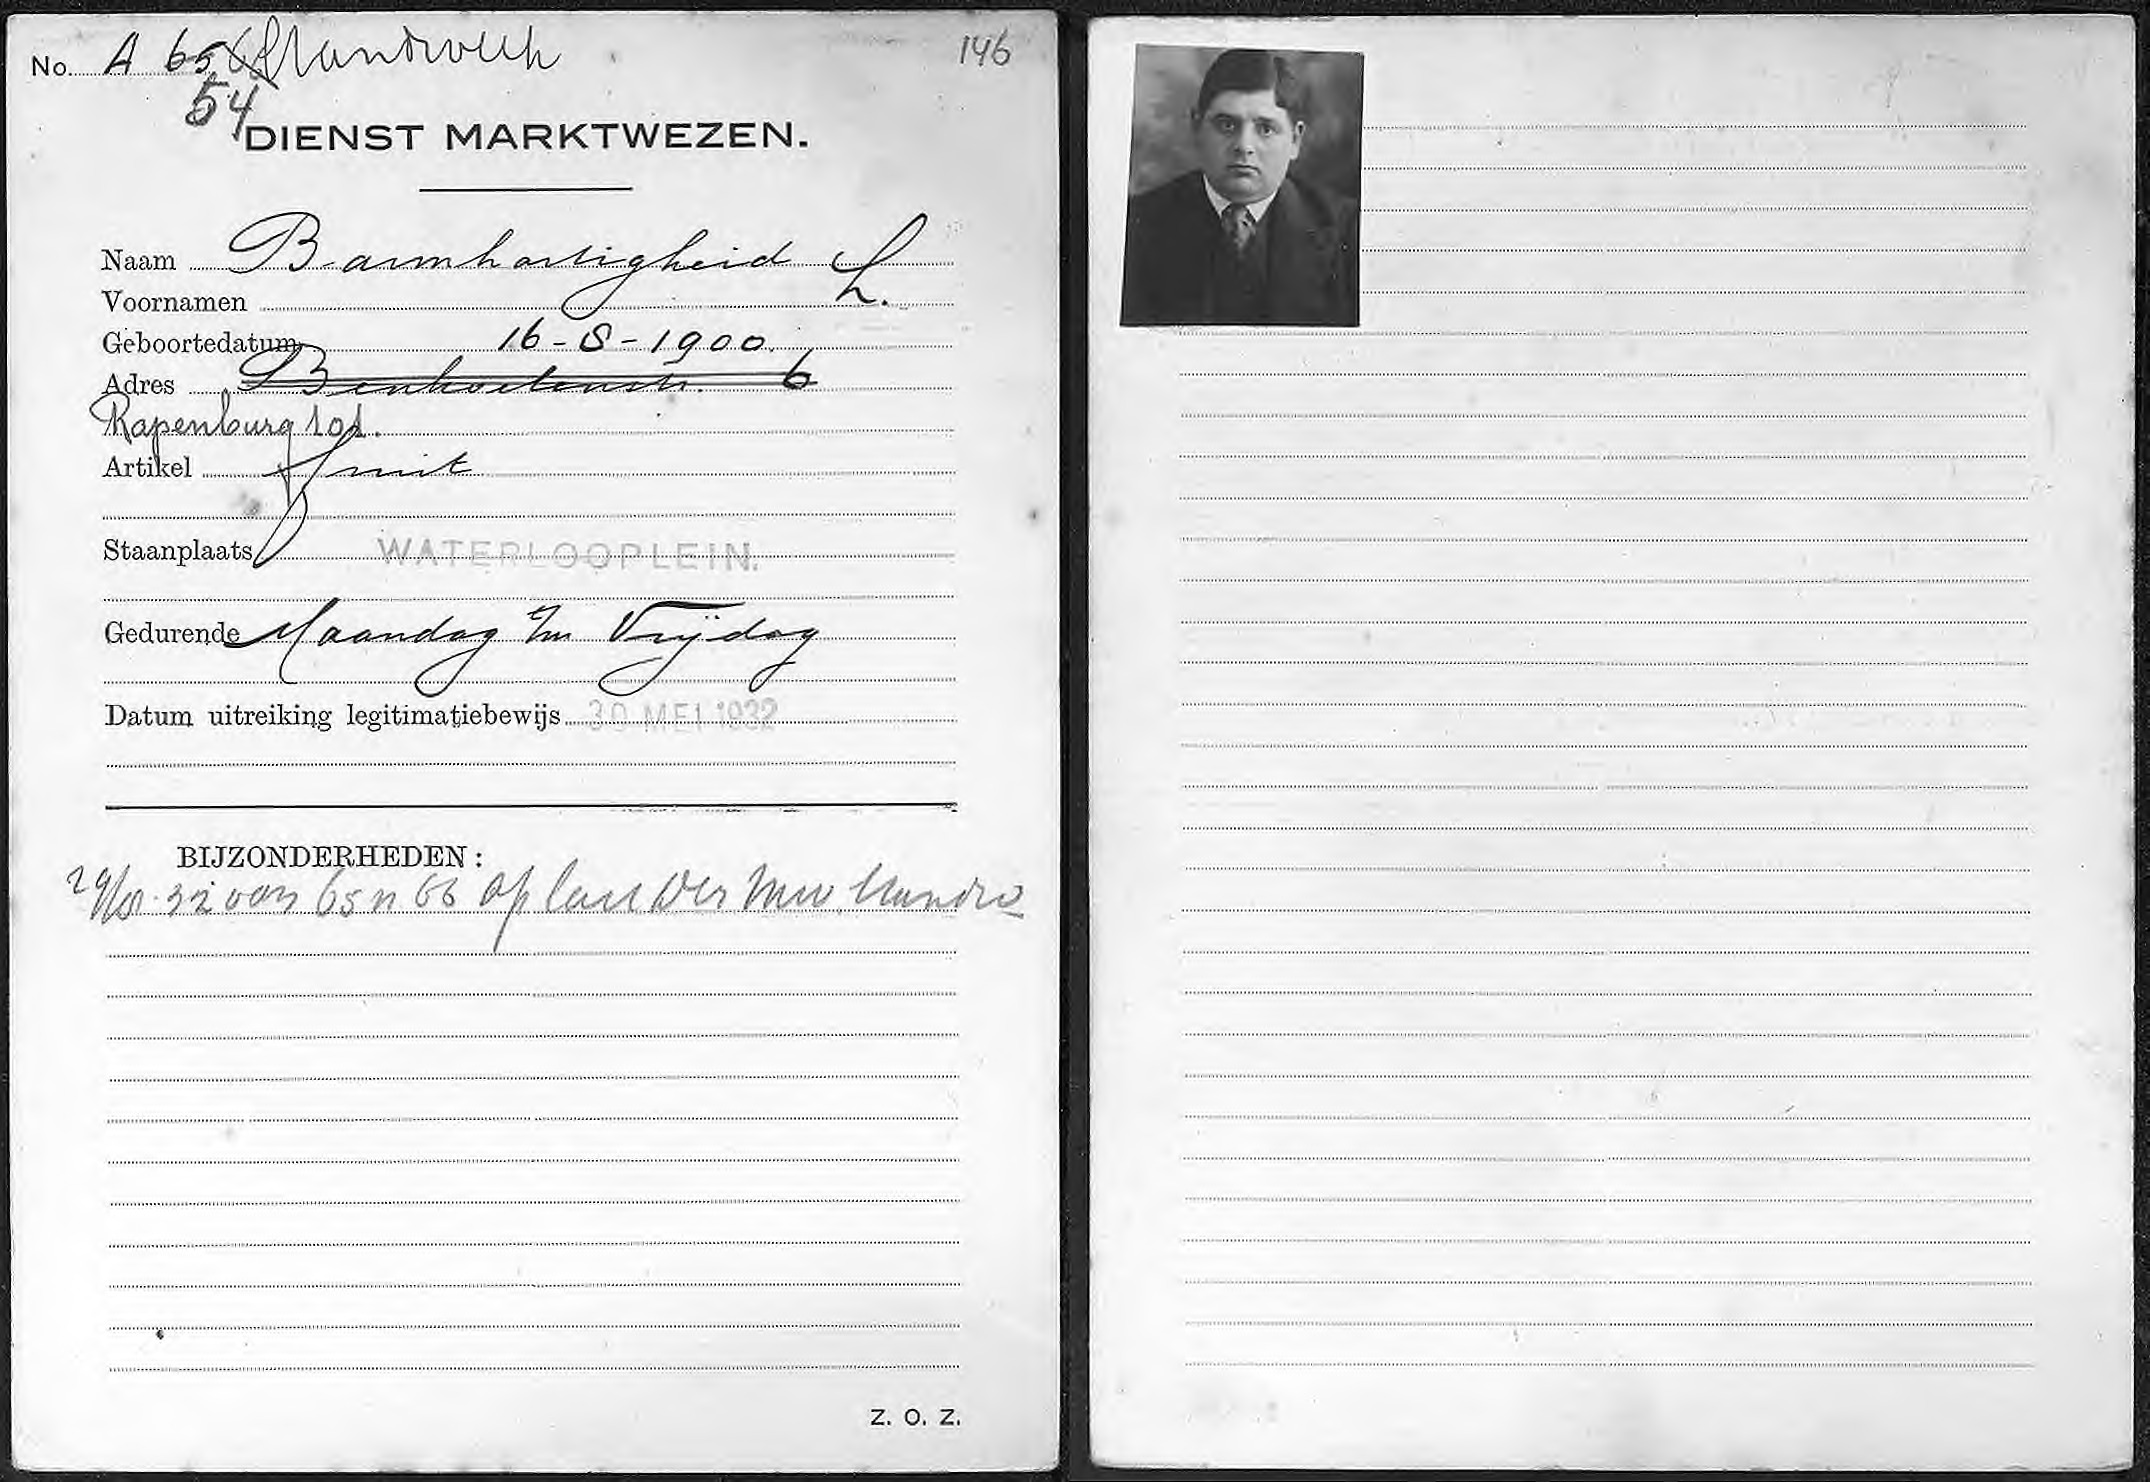 No. A 65
146
54
DIENST MARKTWEZEN.
Naam Barmhartigheid
Voornamen L.
Geboortedatum 16-8-1900.
Adres Benhoetenstr. 6
Rapenburg 101.
Artikel fruit
Staanplaats WATERLOOPLEIN.
Gedurende Maandag t/m Vrijdag
Datum uitreiking legitimatiebewijs 30 MEI 1932
BIJZONDERHEDEN:
32 van 65 n 66 op last
Z. O. Z.